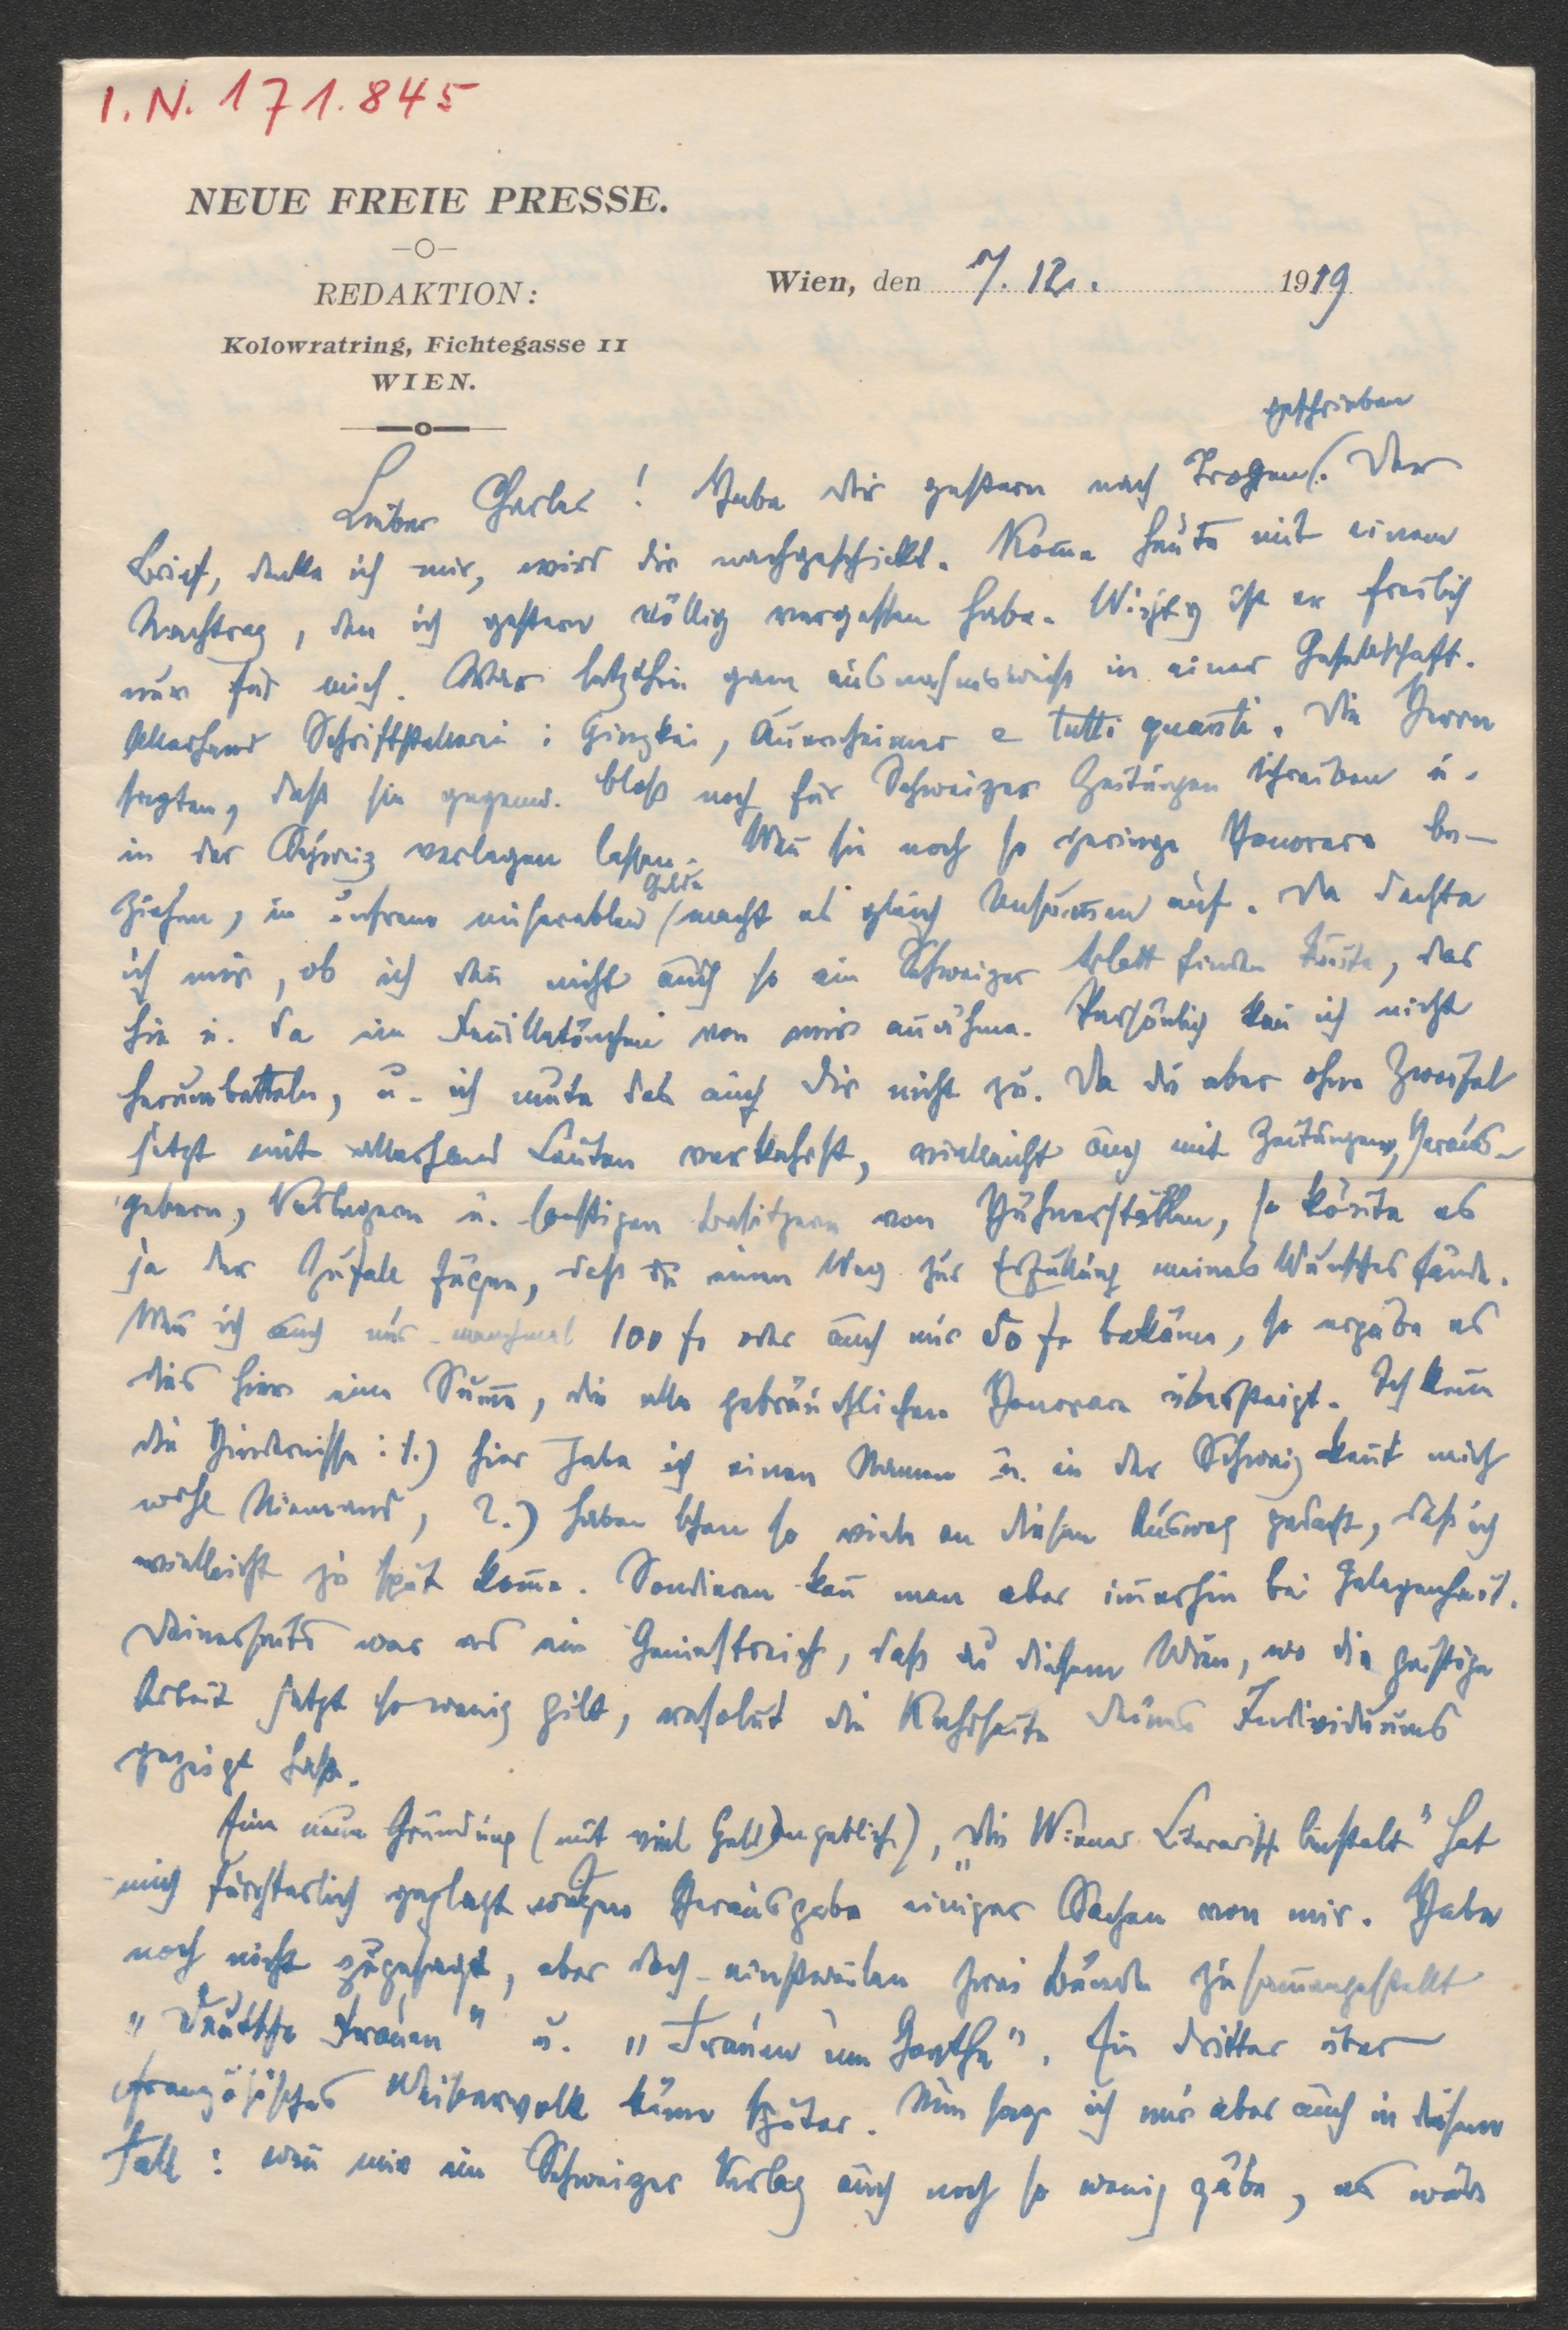 I.N. 171.845
NEUE FREIE PRESSE.
REDAKTION:
Kolowratring, Fichtegasse 11
WIEN.
Wien, den 7. 12. 1919
geschrieben
Lieber Charles! Habe dir gestern nach Trogen. Der
Brief, denke ich mir, wird dir nachgeschickt. Kom̄e heute mit einem
Nachtrag, den ich gestern völlig vergessen habe. Wichtig ist er freilich
nur für mich. War letzthin ganz ausnahmsweise in einer Gesellschaft.
Allerhand Schriftstellerei: Ginzkei, Auernheimer e tutti quanti. Die Herrn
sagten, daß sie gegenw. bloß noch für Schweizer Zeitungen schreiben u.
in der Schweiz verlegen lassen. Wen̄ sie noch so geringe Honorare be-
Gelde
ziehen, in unserem miserablen macht es gleich Unsum̄en auf. Da dachte
ich mir, ob ich den̄ nicht auch so ein Schweizer Blatt finden kön̄te, das
hie u. da ein Feuilletönchen von mir annähme. Persönlich kan̄ ich nicht
herumbetteln, u. ich mute das auch dir nicht zu. Da du aber ohne Zweifel
jetzt mit allerhand Leuten verkehrst, vielleicht auch mit Zeitungen, Heraus-
gebern, Verlegern u. sonstigen Besitzern von Hühnerställen, so kön̄te es
ja der Zufall fügen, daß du einen Weg zur Erfüllung meines Wunsches fände.
Wen̄ ich auch nur manchmal 100 fr oder auch nur 50 fr bekäme, so ergäbe es
dies hier eine Sum̄e, die alle gebräuchlichen Honorare übersteigt. Ich kenne
die Hindernisse: 1.) hier habe ich einen Namen u. in der Schweiz ken̄t mich
wohl Niemand, 2.) haben schon so viele an diesen Ausweg gedacht, daß ich
vielleicht zu spät kom̄e. Sondieren kan̄ man aber im̄erhin bei Gelegenheit.
Deinerseits war es ein Geniestreich, daß du diesem Wien, wo die geistige
Arbeit jetzt so wenig gilt, resolut die Kehrseite deines Individuums
gezeigt hast.
Eine neue Gründung (mit viel Geld angeblich), „die Wiener Literarische Anstalt" hat
mich fürchterlich geplagt wegen Herausgabe einiger Sachen von mir. Habe
noch nicht zugesagt, aber doch einstweilen zwei Bände zusam̄engestellt
„Deutsche Frauen" u. „Frauen um Goethe". Ein dritter über
französisches Weibervolk käme später. Nun sage ich mir aber auch in diesem
Fall: wen̄ mir ein Schweizer Verlag auch noch so wenig gäbe, es wäre